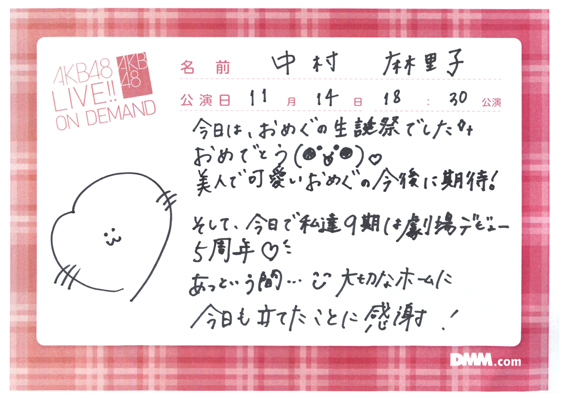 AKB48
LIVE!!
ON DEMAND
AKB
48
名前 中村 麻里子
公演日 11月14日 18:30公演
今日は、おめぐの生誕祭でした
おめでとう
美人で可愛いおめぐの今後に期待!
そして、今日で私達9期は劇場デビュー
5周年♡
あっという間… 大切なホームに
今日も立てたことに感謝!
DMM.com